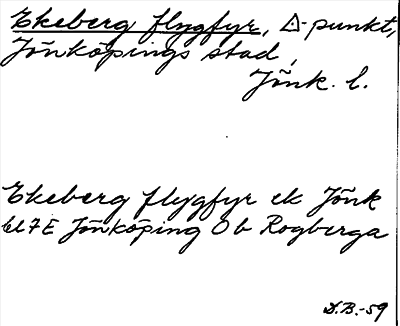 Ekeberg flygfyr, △-punkt,
Jönköpings stad,
Jönk. l.
Ekeberg flygfyr ek Jönk
bl 7E Jönköping Ob Rogberga
D.B.-59